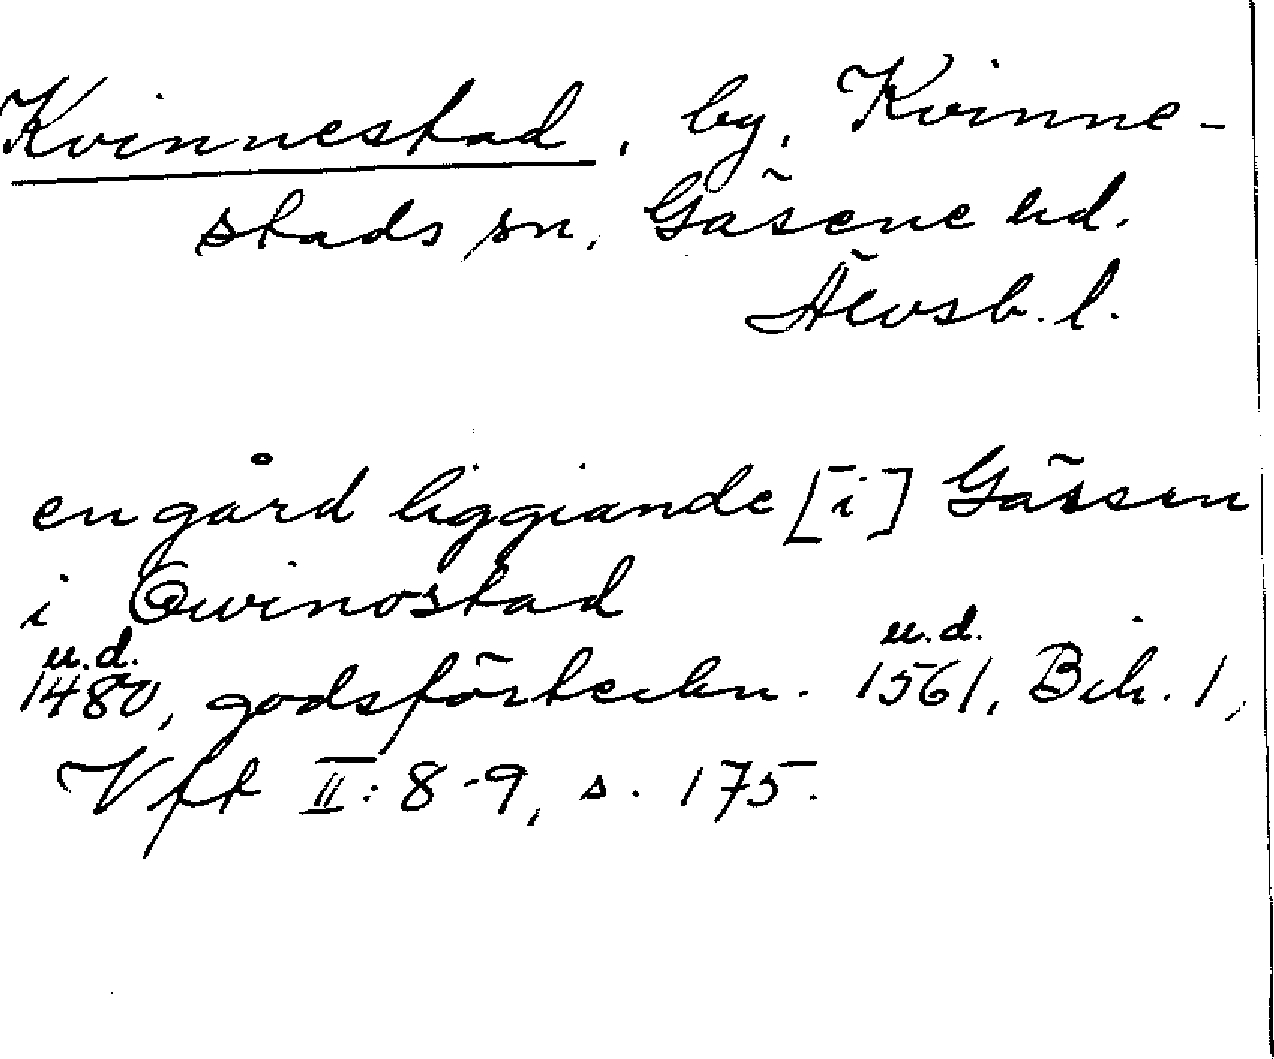 Kvinnestad, by, Kvinne-
stads sn, Gäsene hd.
Älvsb. l.
en gård liggiande [i] Gässen
i Qwinostad
u.d. u.d.
1480, godsförteckn. 1561, Bih. 1,
Vft II: 8-9, s. 175.